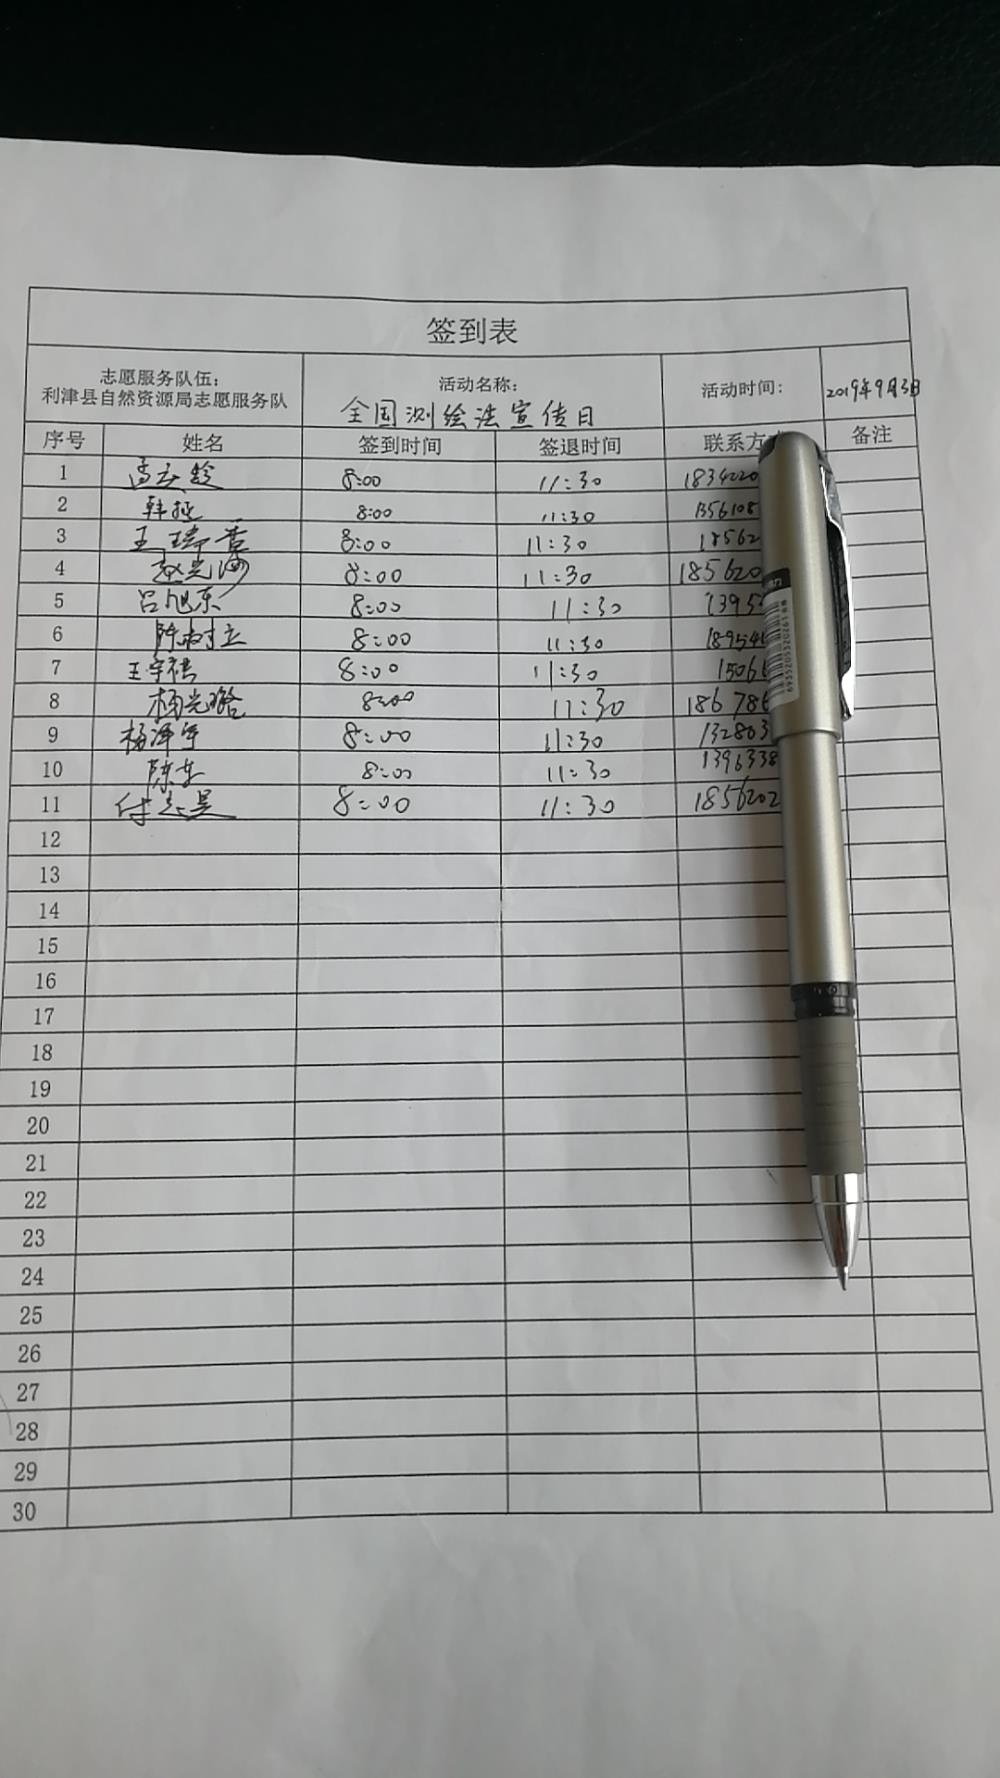 签到表
志愿服务队伍： 活动名称： 活动时间： 2019年9月3日
利津县自然资源局志愿服务队 全国测绘法宣传日
序号 姓名 签到时间 签退时间 联系方 备注
1 高云龄 8:00 11:30 1834020
2 韩 8:00 11:30 1356108
3 王瑞 8:00 11:30 18562
4 赵光海 8:00 11:30 185620
5 吕旭东 8:00 11:30 1395
6 陈树立 8:00 11:30 189546
7 王宇祺 8:00 11:30 1506
8 杨光璐 8:00 11:30 186 786
9 杨泽宇 8:00 11:30 132803
10 陈东 8:00 11:30 1396338
11 付志昊 8:00 11:30 1856202
12
13
14
15
16
17
18
19
20
21
22
23
24
25
26
27
28
29
30
6935205320261